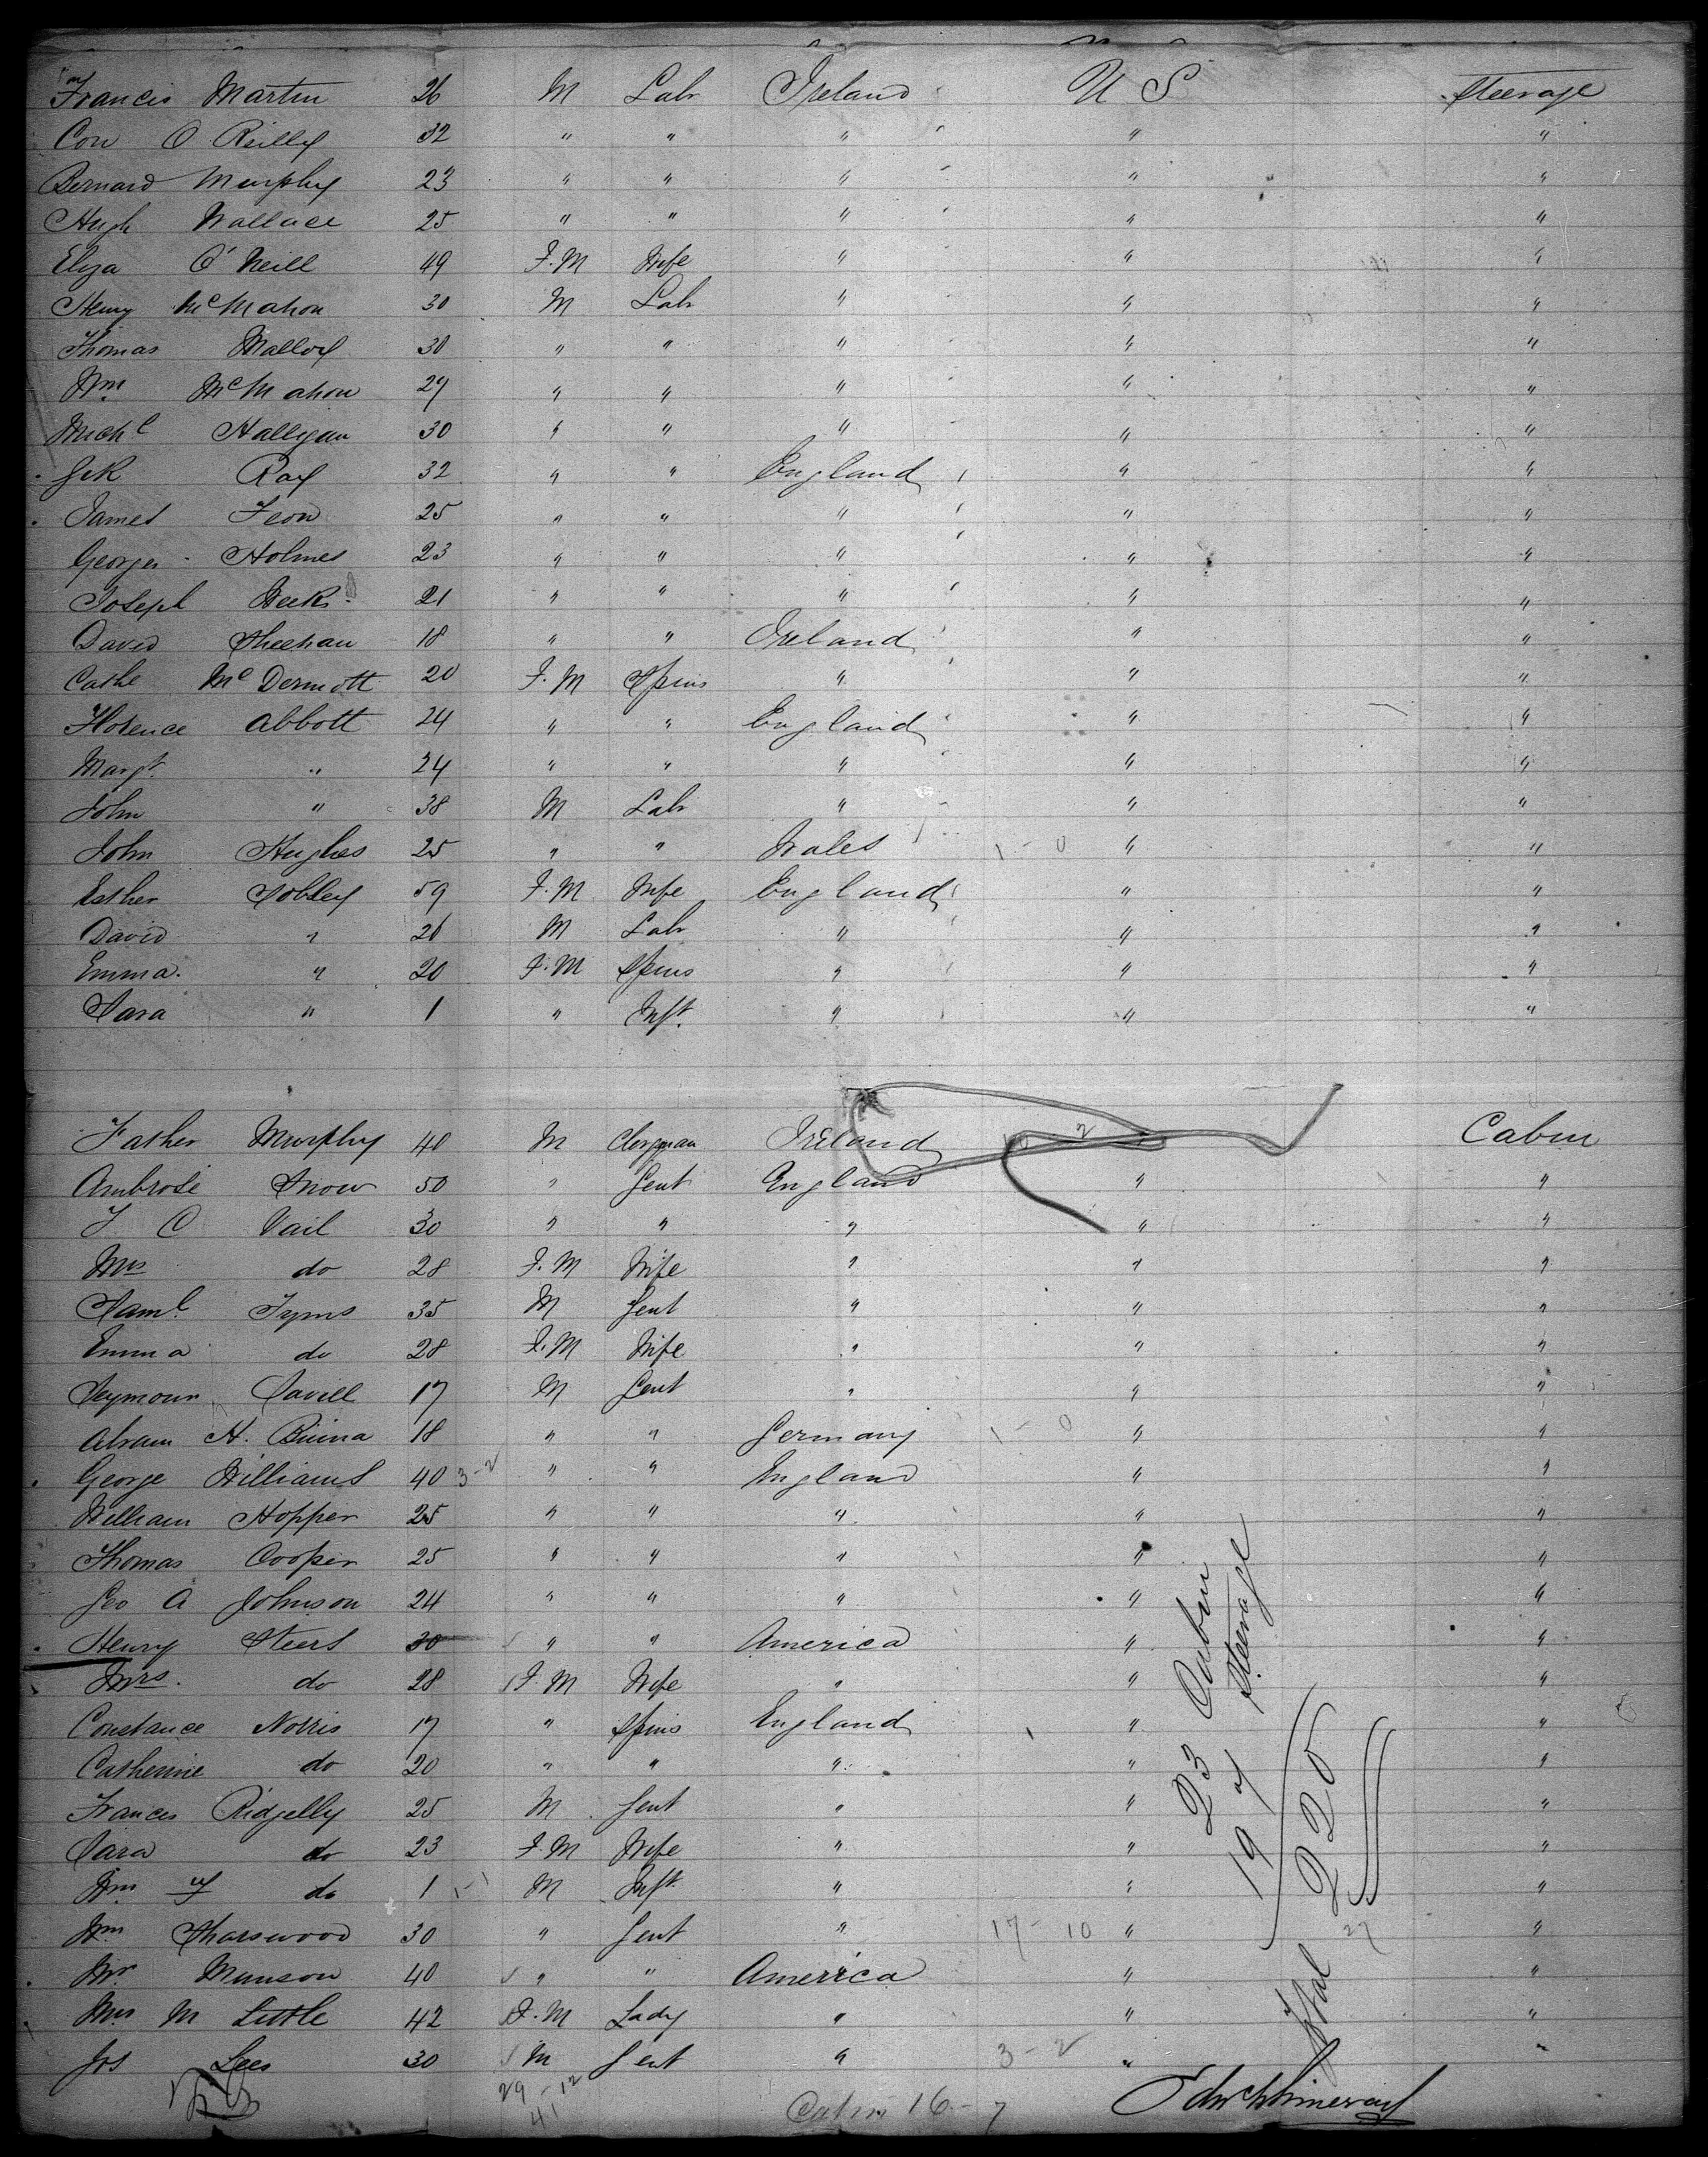 Francis Martin 26 M Labr Ireland U S Steerage
Con O Reilly 32 " " " " "
Bernard Murphy 23 " " " " "
Hugh Wallace 25 " " " " "
Eliza O'Neill 49 F.M Wife " " "
Henry McMahon 30 M Labr " " "
Thomas Malloy 30 " " " " "
Wm McMahon 29 " " " " "
Michl Halligan 30 " " " " "
Ray 32 " " England " "
James 25 " " " " "
George Holmes 23 " " " " "
Joseph Weeks 21 " " " " "
David Sheehan 18 " " Ireland " "
Cathe McDermott 20 F.M Spins " " "
Florence Abbott 24 " " England " "
Margt " 24 " " " " "
John " 38 M Labr " " "
John Hughes 25 " " Wales 1 - 0 " "
Esther 59 F.M Wife England " "
David " 26 M Labr " " "
Emma " 20 F.M Spins " " "
Sara " 1 " Inft. " " "
Father Murphy 40 M Clergyman Ireland 2 Cabin
Ambrose Snow 50 " Gent England " "
J C Vail 30 " " " " "
Mrs do 28 F.M Wife " " "
Saml. Tyms 35 M Gent " " "
Emma do 28 F.M Wife " " "
Seymour Savill 17 M Gent " " "
Abram H. 18 " " Germany 1 - 0 " "
George Williams 40 3-2 " " England " "
William Hopper 25 " " " " "
Thomas Cooper 25 " " " " "
Geo A Johnson 24 " " " " "
Henry Steers 30 " " America " "
Mrs. do 28 F.M Wife " " "
Constance Norris 17 " Spins England " "
Catherine do 20 " " " " "
Frances Ridgelly 25 M Gent " " "
Sara do 23 F.M Wife " " "
Wm do 1 1-1 M Inft " " "
Wm Sharswood 30 " Gent " 17 - 10 " "
Mr Munson 40 " " America " "
Mrs M Little 42 F.M Lady " " "
Jos Lees 30 M Gent " 3 - 2 " "
29 - 12
41
Cabin 16 - 7
23 Cabin
197 Steerage
Total 220
27